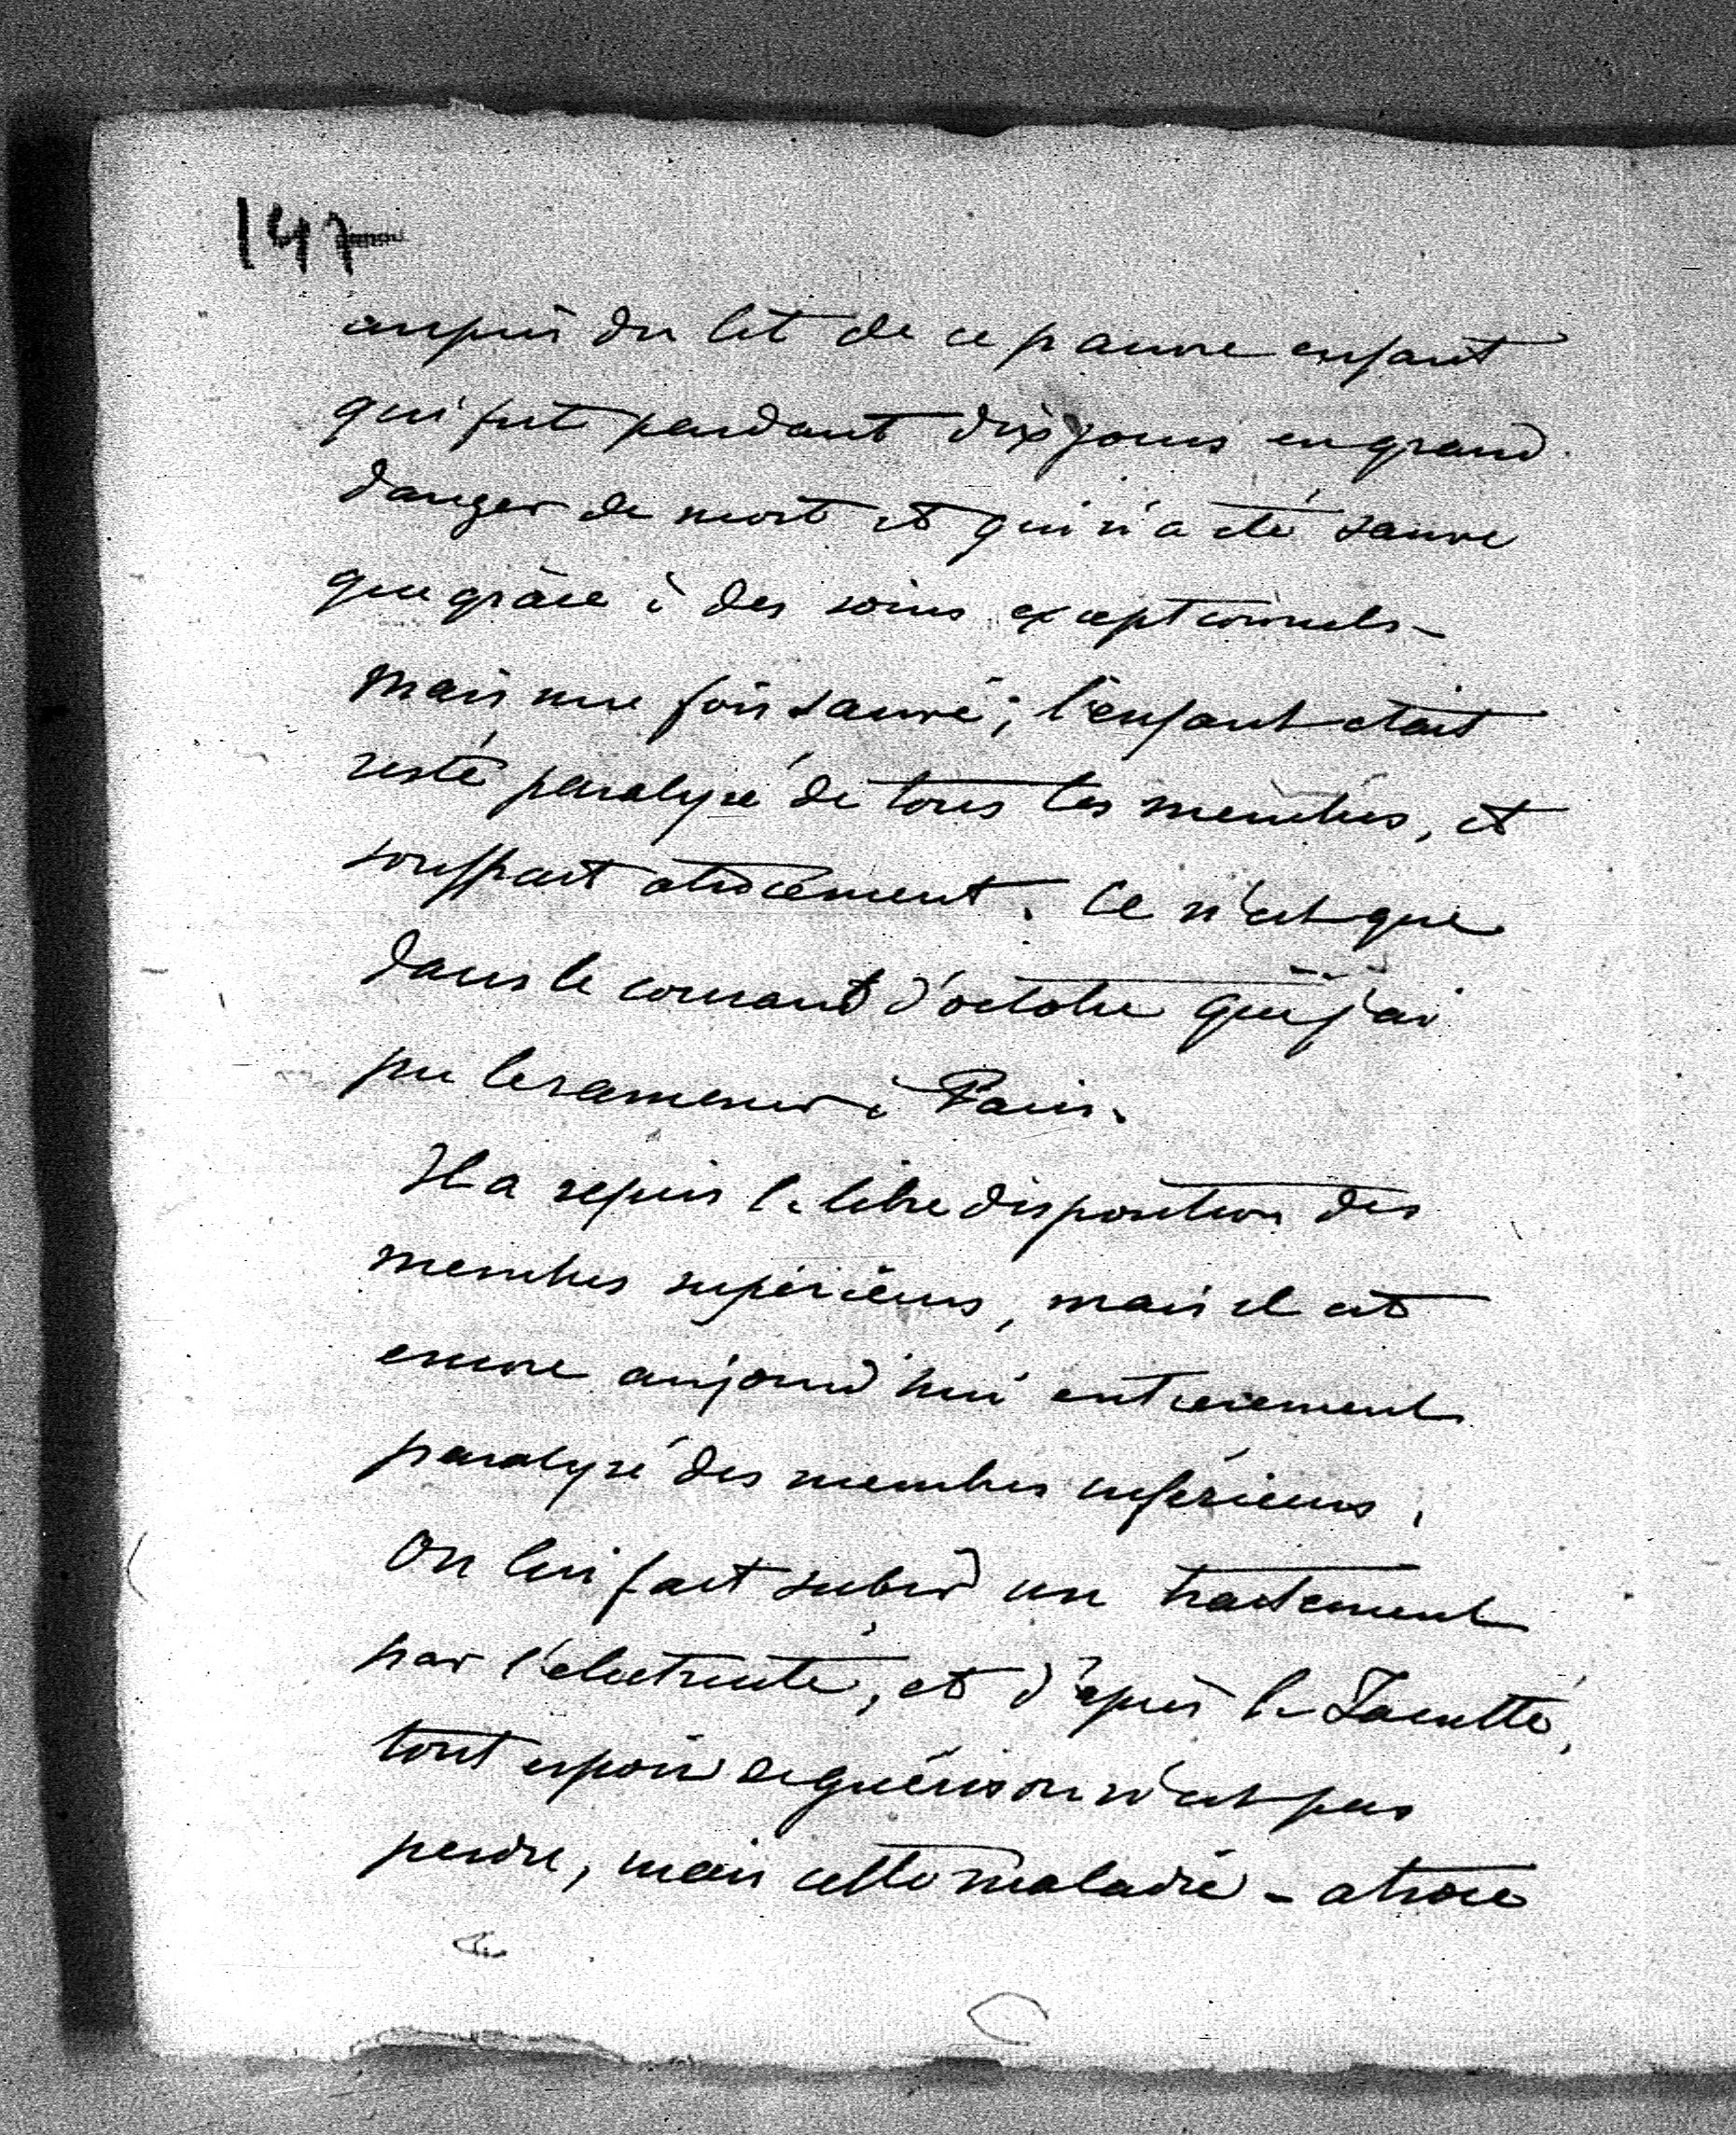 147
auprès du lit de ce pauvre enfant
qui fut pendant dix jours en grand
danger de mort et qui n'a été sauvé
que grâce à des soins exceptionnels -
Mais une fois sauvé, l'enfant était
resté paralysé de tous les membres, et
souffrait atrocement. Ce n'est que
dans le courant d'octobre que j'ai
pu le ramener à Paris.
Il a repris la libre disposition des
membres supérieurs, mais il est
encore aujourd'hui entièrement
paralysé des membres inférieurs.
On lui fait subir un traitement
par l'électricité, et d'après la Faculté,
tout espoir de guérison n'est pas
perdu, mais cette maladie - atroce